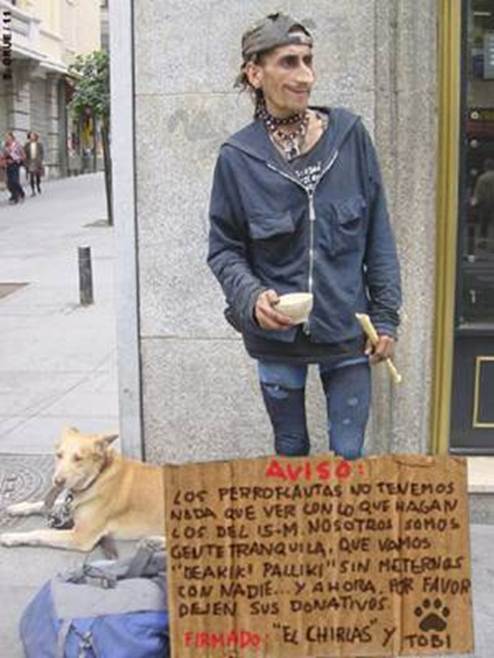 AVISO:
LOS PERROFLAUTAS NO TENEMOS
NADA QUE VER CON LO QUE HAGAN
LOS DEL 15-M. NOSOTROS SOMOS
GENTE TRANQUILA, QUE VAMOS
"DEAKIKI PALLIKI" SIN METERNOS
CON NADIE... Y AHORA, POR FAVOR
DEJEN SUS DONATIVOS.
FIRMADO: "EL CHIRLAS" Y TOBI